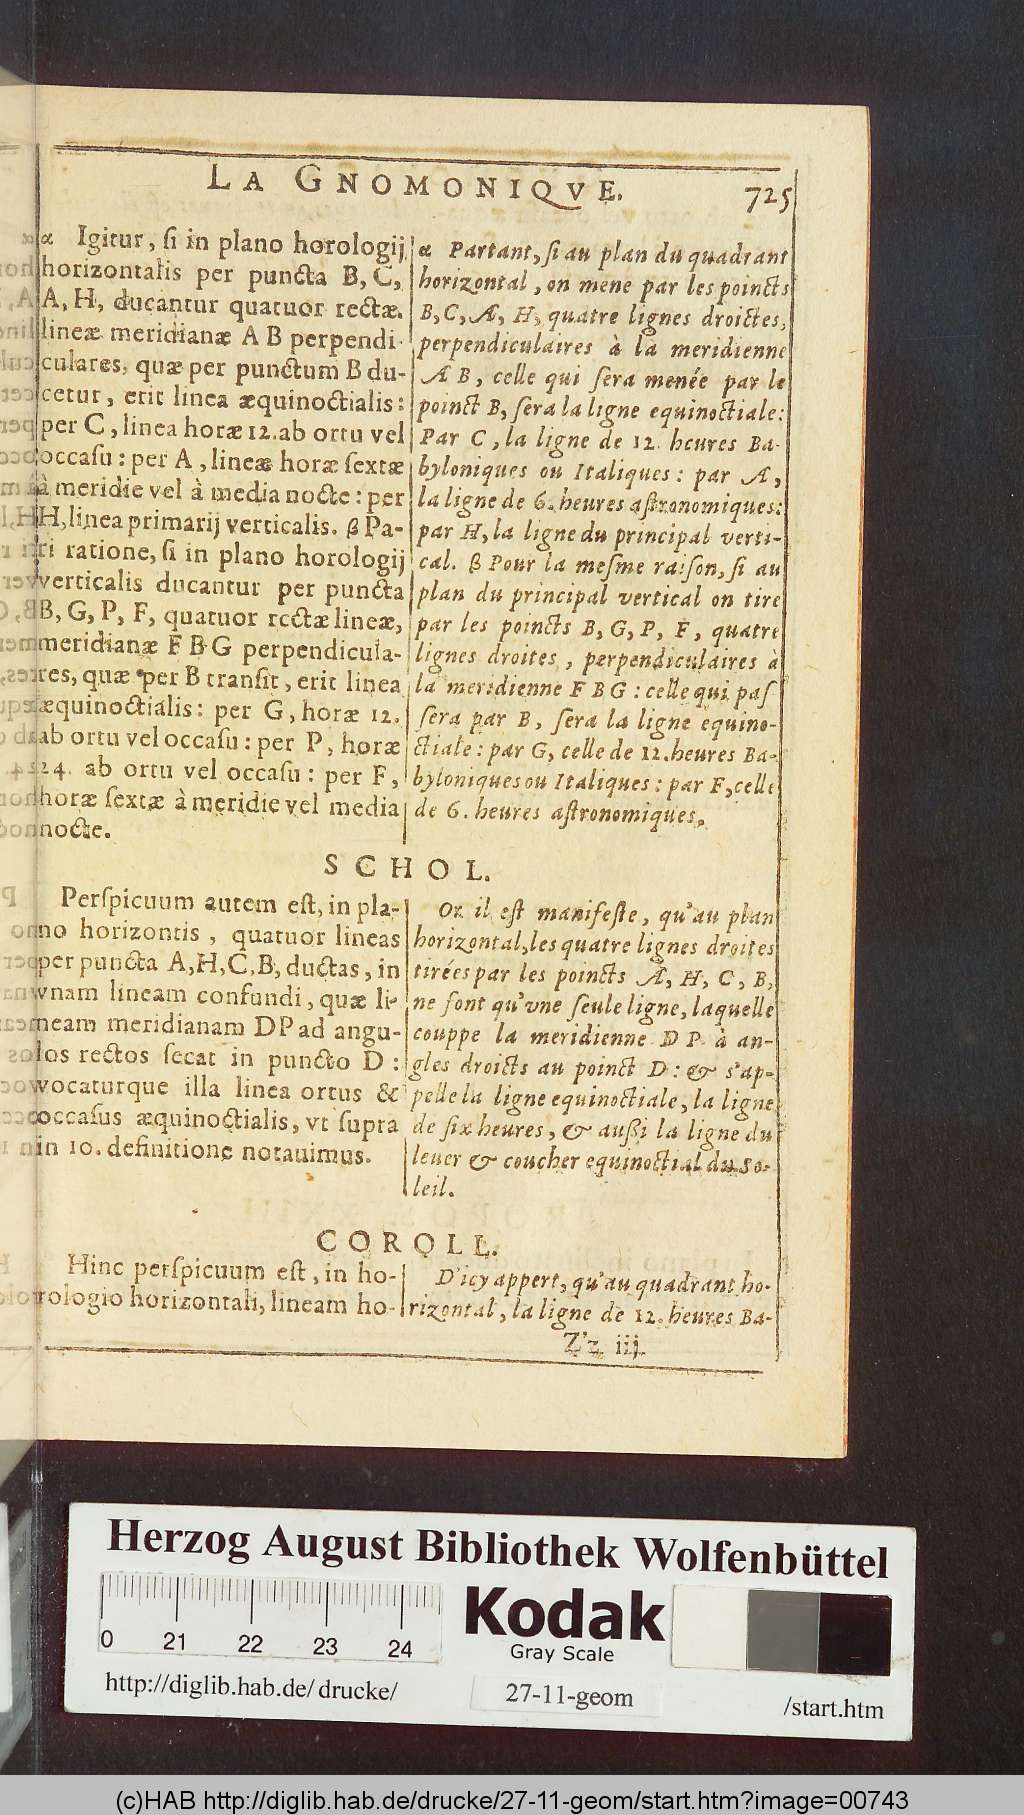 LA GNOMONIQVE.
725
α Igitur, ſi in plano horologij
horizontalis per puncta B, C,
A, H, ducantur quatuor rectæ.
lineæ meridianæ A B perpendi-
culares, quæ per punctum B du-
cetur, erit linea æquinoctialis:
per C, linea horæ 12. ab ortu vel
occaſu: per A, lineæ horæ ſextæ
à meridie vel à media nocte: per
H, linea primarij verticalis. β Pa-
ri ratione, ſi in plano horologij
verticalis ducantur per puncta
B, G, P, F, quatuor rectæ lineæ,
meridianæ F B G perpendicula-
res, quæ per B tranſit, erit linea
æquinoctialis: per G, horæ 12.
ab ortu vel occaſu: per P, horæ
24. ab ortu vel occaſu: per F,
horæ ſextæ à meridie vel media
nocte.
α Partant, ſi au plan du quadrant
horizontal, on mene par les poincts
B, C, A, H, quatre lignes droictes,
perpendiculaires à la meridienne
A B, celle qui ſera menée par le
poinct B, ſera la ligne equinoctiale:
Par C, la ligne de 12. heures Ba-
byloniques ou Italiques: par A,
la ligne de 6. heures aſtronomiques:
par H, la ligne du principal verti-
cal. β Pour la meſme raiſon, ſi au
plan du principal vertical on tire
par les poincts B, G, P, F, quatre
lignes droites, perpendiculaires à
la meridienne F B G: celle qui paſ
ſera par B, ſera la ligne equino-
ctiale: par G, celle de 12. heures Ba-
byloniques ou Italiques: par F, celle
de 6. heures aſtronomiques.
SCHOL.
Perſpicuum autem eſt, in pla-
no horizontis, quatuor lineas
per puncta A, H, C, B, ductas, in
vnam lineam confundi, quæ li-
neam meridianam DP ad angu-
los rectos ſecat in puncto D:
vocaturque illa linea ortus &
occaſus æquinoctialis, vt ſupra
in 10. definitione notauimus.
Or il eſt manifeſte, qu'au plan
horizontal, les quatre lignes droites
tirées par les poincts A, H, C, B,
ne ſont qu'vne ſeule ligne, laquelle
couppe la meridienne D P à an-
gles droicts au poinct D: & s'ap-
pelle la ligne equinoctiale, la ligne
de ſix heures, & auſſi la ligne du
leuer & coucher equinoctial du so-
leil.
COROLL.
Hinc perſpicuum eſt, in ho-
rologio horizontali, lineam ho-
D'icy appert, qu'au quadrant ho-
rizontal, la ligne de 12. heures Ba-
Zz iij.
Herzog August Bibliothek Wolfenbüttel
0 21 22 23 24
Kodak
Gray Scale
http://diglib.hab.de/ drucke/
27-11-geom
/start.htm
(c)HAB http://diglib.hab.de/drucke/27-11-geom/start.htm?image=00743